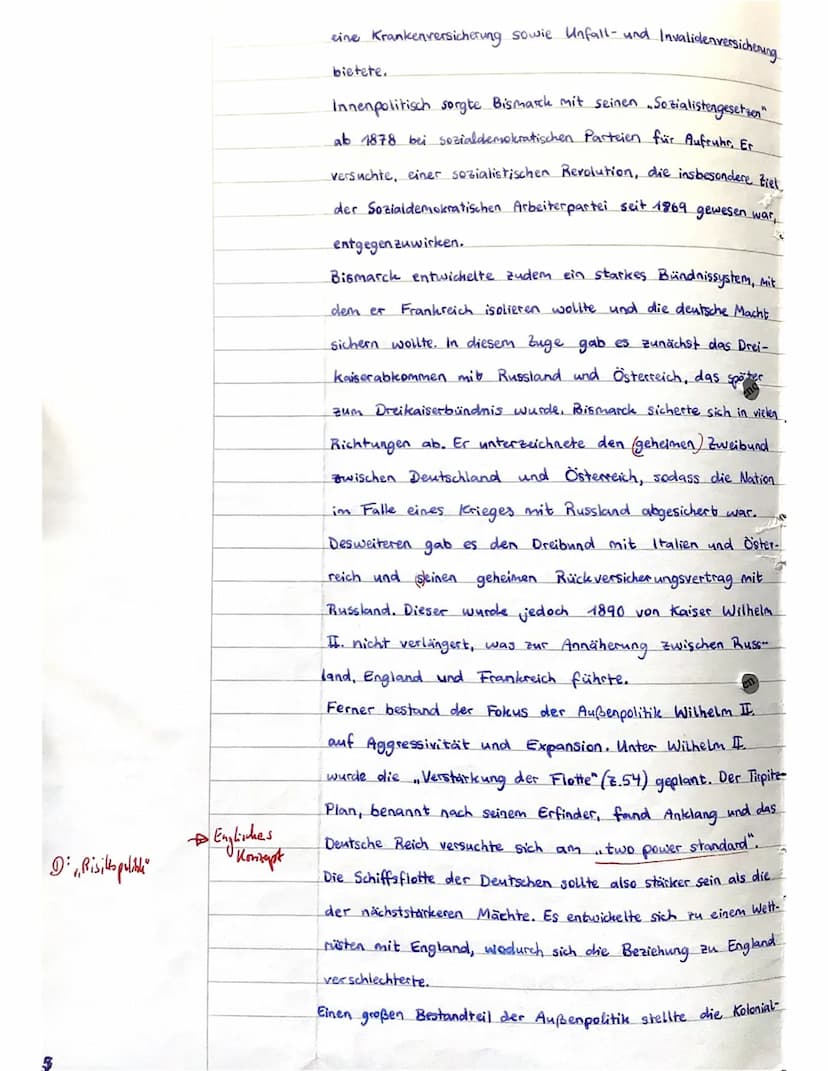 eine Krankenversicherung sowie Unfall- und Invalidenversicherung
bietete.
Innenpolitisch sorgte Bismarck mit seinen „Sozialistengesetzen"
ab 1878 bei sozialdemokratischen Parteien für Aufruhr. Er
versuchte, einer sozialistischen Revolution, die insbesondere Ziel
der Sozialdemokratischen Arbeiterpartei seit 1869 gewesen war,
entgegenzuwirken.
Bismarck entwickelte zudem ein starkes Bündnissystem, mit
dem er Frankreich isolieren wollte und die deutsche Macht
sichern wollte. In diesem Zuge gab es zunächst das Drei-
kaiserabkommen mit Russland und Österreich, das später
zum Dreikaiserbündnis wurde. Bismarck sicherte sich in vielen
Richtungen ab. Er unterzeichnete den (geheimen) Zweibund
zwischen Deutschland und Österreich, sodass die Nation
im Falle eines Krieges mit Russland abgesichert war.
Desweiteren gab es den Dreibund mit Italien und Öster-
reich und einen geheimen Rückversicherungsvertrag mit
Russland. Dieser wurde jedoch 1890 von Kaiser Wilhelm
II. nicht verlängert, was zur Annäherung zwischen Russ-
land, England und Frankreich führte.
Ferner bestand der Fokus der Außenpolitik Wilhelm II.
auf Aggressivität und Expansion. Unter Wilhelm II.
wurde die „Verstärkung der Flotte" (Z.54) geplant. Der Tirpitz-
Plan, benannt nach seinem Erfinder, fand Anklang und das
→ Englisches
Konzept
Deutsche Reich versuchte sich am „two power standard".
D: „Risikopolitik"
Die Schiffsflotte der Deutschen sollte also stärker sein als die
der nächststärkeren Mächte. Es entwickelte sich zu einem Wett-
rüsten mit England, wodurch sich die Beziehung zu England
verschlechterte.
Einen großen Bestandteil der Außenpolitik stellte die Kolonial-
5